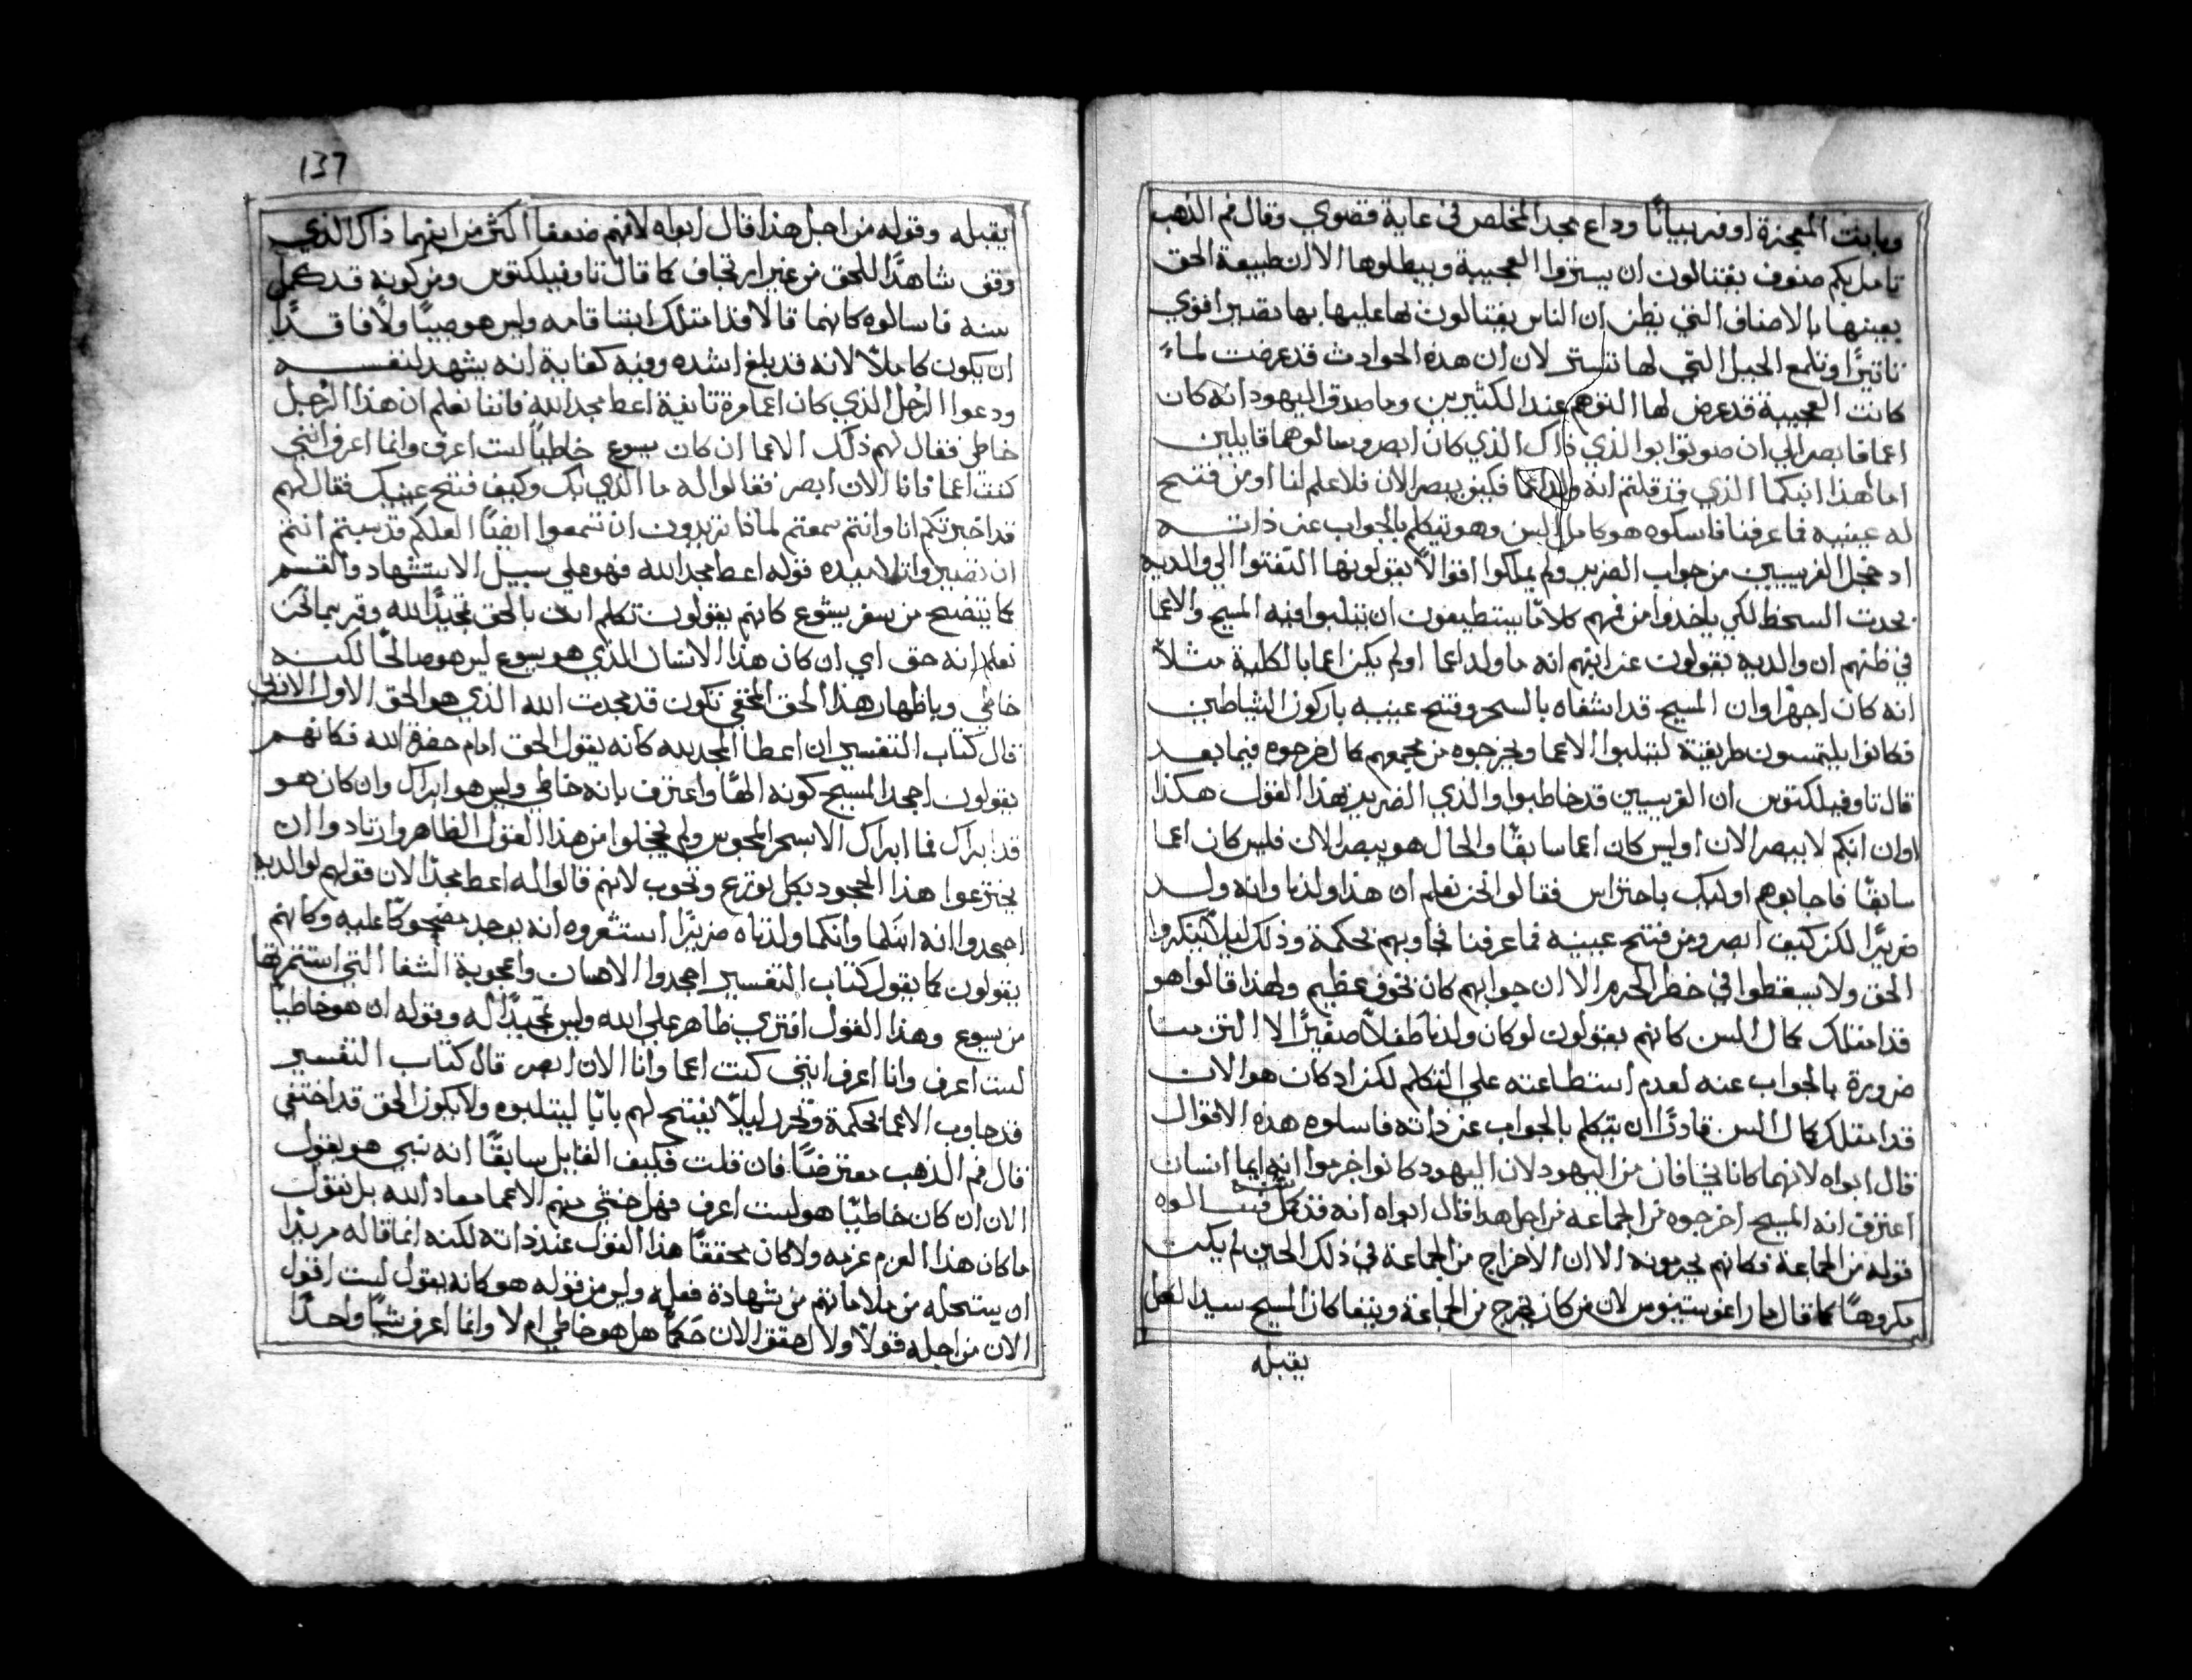 وبابنت المعجزة اوفر بيانًا وذاع مجد المخلص في غاية قصوي وقال فم الذهب
تامل بكم صنوف يقتالون ان يستروا العجيبة ويبطلوها الا ان طبيعة الحق
بعينها بالاصناف التي يظن ان الناس يقتالون لها عليها بها تصير اقوي
تاثيرًا وتلمع الحيل التي لها تستر لان ان هذه الحوادث قد عرضت لماء
كانت العجيبة قد عرض لها التوهم عند الكثيرين وما صدق اليهود انه كان
اعما فابصر الي ان صوتوا ابوا الذي ذاك الذي كان ابصر وسالوهما قايلين
اما هذا ابنكما الذي قد قلتم انه ولد اعما فكيف يبصر الان فلا علم لنا اومن فتح
له عينيه فاعرفنا فاسلوه هو كامل السن وهو يتكلم بالجواب عن ذاته
اد خجل الفريسيين من جواب الضرير ولم يملكوا اقوالًا يقولونها التفتوا الي والديه
بحدت السخط لكي ياخذوا من فهم كلامًا يستطيعون ان يتلبوا فيه المسيح والاعما
في ظنهم ان والديه يقولون عن ابنهم انه ما ولد اعما اولم يكن اعما بالكلية مثلًا
انه كان اجهرًا وان المسيح قد اشفاه بالسحر وفتح عينيه باركون الشياطين
فكانوا يلتمسون طريقة ليتلبوا الاعما ويخرجوه من مجمعهم كما اخرجوه فيما بعد
قال تاوفيلكتوس ان الفريسيين قد خاطبوا والذي الضرير بهذا القول هكذا
اوان ابنكم لا يبصر الان اوليس كان اعما سابقًا والحال هو يبصر الان فليس كان اعما
سابقًا فاجابوهم اوليك باحتراس فقالوا نحن نعلم ان هذا ولدنا وانه ولد
ضريرًا لكن كيف ابصر ومن فتح عينيه فما عرفنا فجاوبهم بحكمة وذلك ليلا ينكروا
الحق ولا يسقطوا في خطر الحرم الا ان جوابهم كان بخوف عظيم ولهذا قالوا هو
قد امتلك كمال السن كانهم يقولون لو كان ولدنا طفلًا صغيرًا لا التزمنا
ضرورة بالجواب عنه لعدم استطاعته علي التكلم لكن اد كان هو الان
قد امتلك كمال السن قادرًا ان يتكلم بالجواب عن ذاته فاسلوه هذه الاقوال
قال ابواه لانهما كانا يخافان من اليهود لان اليهود كانوا اخرموا انه ايما انسان
اعترف انه المسيح اخرجوه من الجماعة من اجل هدا قال ابواه انه قد كمل سنه فسالوه
قوله من الجماعة فكانهم يحرمونه الا ان الاخراج من الجماعة في ذلك الحين لم يكن
مكروهًا كما قال مار اغوستينوس لان من كان يخرج من الجماعة وينفا كان المسيح سيد الكل
يقبله
137
يقبله وقوله من اجل هذا قال ابواه لانهم ضعفا اكثر من ابنهما ذاك الذي
وقف شاهدًا للحق من غير ارتجاف كما قال تاوفيلكتوس ومن كونه قد كمل
سنه فاسالوه كانهما قالا قد امتلك ابننا قامه وليس هو صبيًا ولا فاقدًا
ان يكون كاملًا لانه قد بلغ اشده وفيه كفاية انه يشهد لنفسه
ودعوا الرجل الذي كان اعما مرة تانية اعط مجد الله فاننا نعلم ان هذا الرجل
خاطي فقال لهم ذلك الاعما ان كان يسوع خاطيًا لست اعرف وانما اعرف انني
كنت اعما فانا الان ابصر فقالوا له ما الذي بك وكيف فتح عينيك فقال لهم
قد اخبرتكم انا وانتم سمعتم لماذا تريدون ان تسمعوا ايضًا العلكم قد سيتم انتم
ان تصيروا تلاميده قوله اعط مجد الله فهو علي سبيل الاستشهاد والقسم
كما يتضح من سفر يشوع كانهم يقولون تكلم انت بالحق تمجيدًا لله وقر بما نحن
نعلم انه حق اي ان كان هذا الانسان الذي هو يسوع ليس هو صالحًا لكنه
خاطي وباظهار هذا الحق المخفي تكون قد مجدت الله الذي هو الحق الاول الازلي
قال كتاب التفسير ان اعطا المجد يله كانه يقول الحق امام حضرة الله فكانهم
يقولون اجحد المسيح كونه الهًا واعترف بانه خاطي وليس هو ابراك وان كان هو
قد ابراك فما ابراك الا بسحر المجوس ولم يخجلوا من هذا القول الظاهر وارتادوا ان
يخترعوا هذا الجحود بكل تورع وتحوب لانهم قالوا له اعط مجدًا لان قولهم لوالديه
اجحدوا انه ابنكما وانكما ولدتاه ضريرًا استشعروه انه يوجد مضحوكًا عليه وكانهم
يقولون كما يقول كتاب التفسير اجحدوا الاحسان واعجوبة الشفا التي استثمرتها
من يسوع وهذا القول افتري ظاهر علي الله وليس تمجيدًا له وقوله ان هو خاطيًا
لست اعرف وانا اعرف انني كنت اعما وانا الان ابصر قال كتاب التفسير
قد جاوب الاعما بحكمة وتحرد ليلًا يفتح لهم بابًا ليتلبوه ولا يكون الحق قد اختفي
قال فم الذهب معترضًا فان قلت فكيف القايل سابقًا انه نبي هو يقول
الان ان كان خاطيًا هو لست اعرف فهل خشي منهم الاعما معاد الله بل نقول
ما كان هذا العزم عزمه ولا كان محققًا هذا القول عند ذاته لكنه انما قاله مريدًا
ان يستحله من ملاماتهم من شهادة فعله وليس من قوله هو كانه يقول لست اقول
الان من اجله قولًا ولا احقق الان حكمًا هل هو خاطي ام لا وانما اعرف شيًا واحدًا